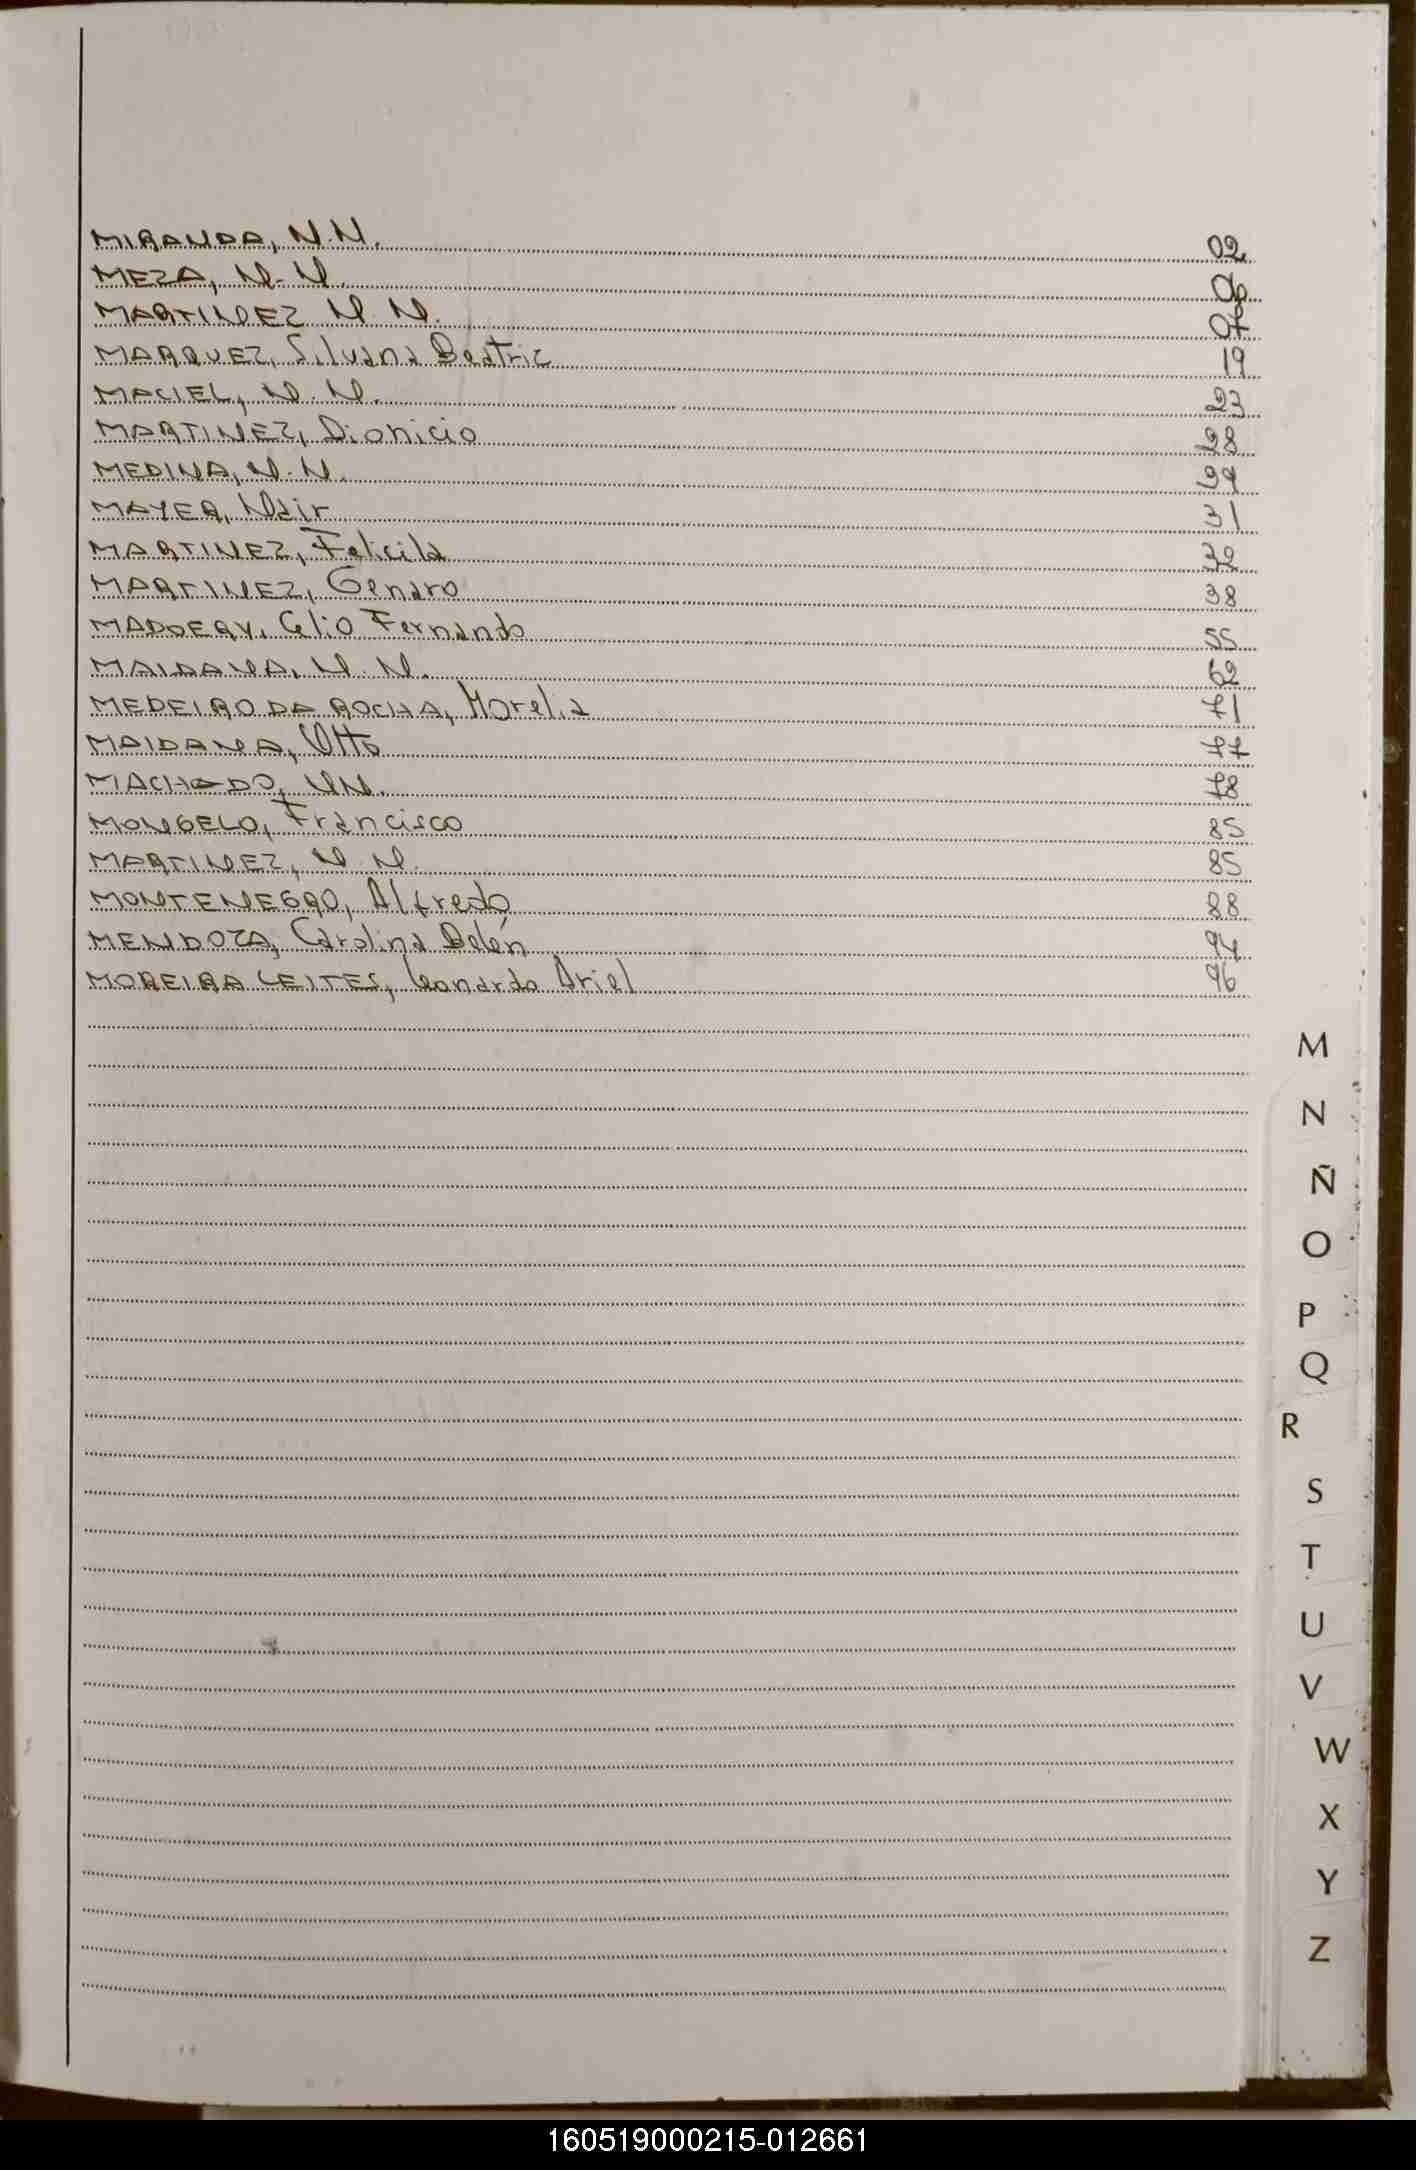 MIRANDA, N.N. 02
MEZA, N.N. 06
MARTINEZ N.N. 07
MARQUEZ, Silvana Beatriz 19
MACIEL, N.N. 23
MARTINEZ, Dionicio 28
MEDINA, N.N. 29
MAYER, Nair 31
MARTINEZ, Felicita 32
MARTINEZ, Genaro 38
MADOERY, Celio Fernando 55
MAIDANA, N.N. 62
MEDEIRO DA ROCHA, Morelia 71
MAIDANA, Otto 77
MACHADO, NN. 78
MONGELO, Francisco 85
MARTINEZ, N.N. 85
MONTENEGRO, Alfredo 88
MENDOZA, Carolina Belén 94
MOREIRA LEITES, Leonardo Ariel 96
M
N
Ñ
O
P
Q
R
S
T
U
V
W
X
Y
Z
160519000215-012661